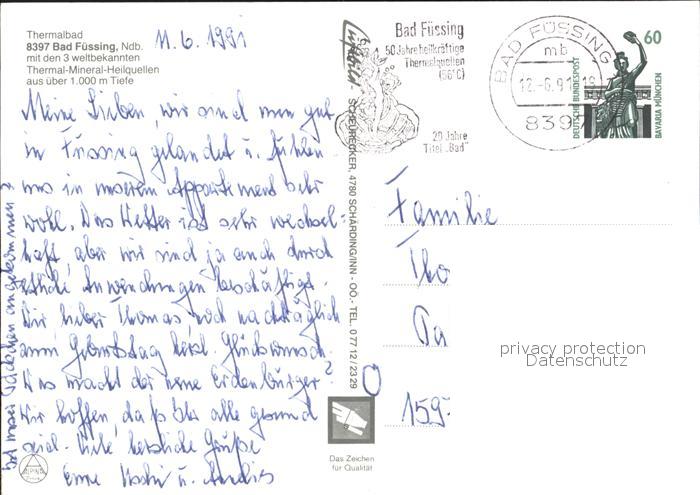 Thermalbad
8397 Bad Füssing, Ndb.
mit den 3 weltbekannten
Thermal-Mineral-Heilquellen
aus über 1.000 m Tiefe
11.6.1991
Meine Lieben, wir sind nun gut
in Füssing gelandet u. fühlen
uns in unserem Appartement sehr
wohl. Das Wetter ist sehr wechsel-
haft, aber wir sind ja auch durch
etliche Anwendungen beschäftigt.
Dir lieber Thomas, noch nachträglich
zum Geburtstag herzl. Glückwunsch.
Was macht der neue Erdenbürger?
Wir hoffen, daß Ihr alle gesund
seid. Viele herzliche Grüße
Eure Uschi u.
Ist unser Päckchen angekommen?
SCHEURECKER, 4780 SCHÄRDING/INN - OÖ. - TEL. 0 77 12 / 23 29
Bad Füssing
50 Jahre heilkräftige
Thermalquellen
(56°C)
20 Jahre
Titel „Bad"
BAD FÜSSING
mb
12.-6.91-19
839
60
DEUTSCHE BUNDESPOST
BAVARIA MÜNCHEN
Familie
Tho
159
privacy protection
Datenschutz
Das Zeichen
für Qualität